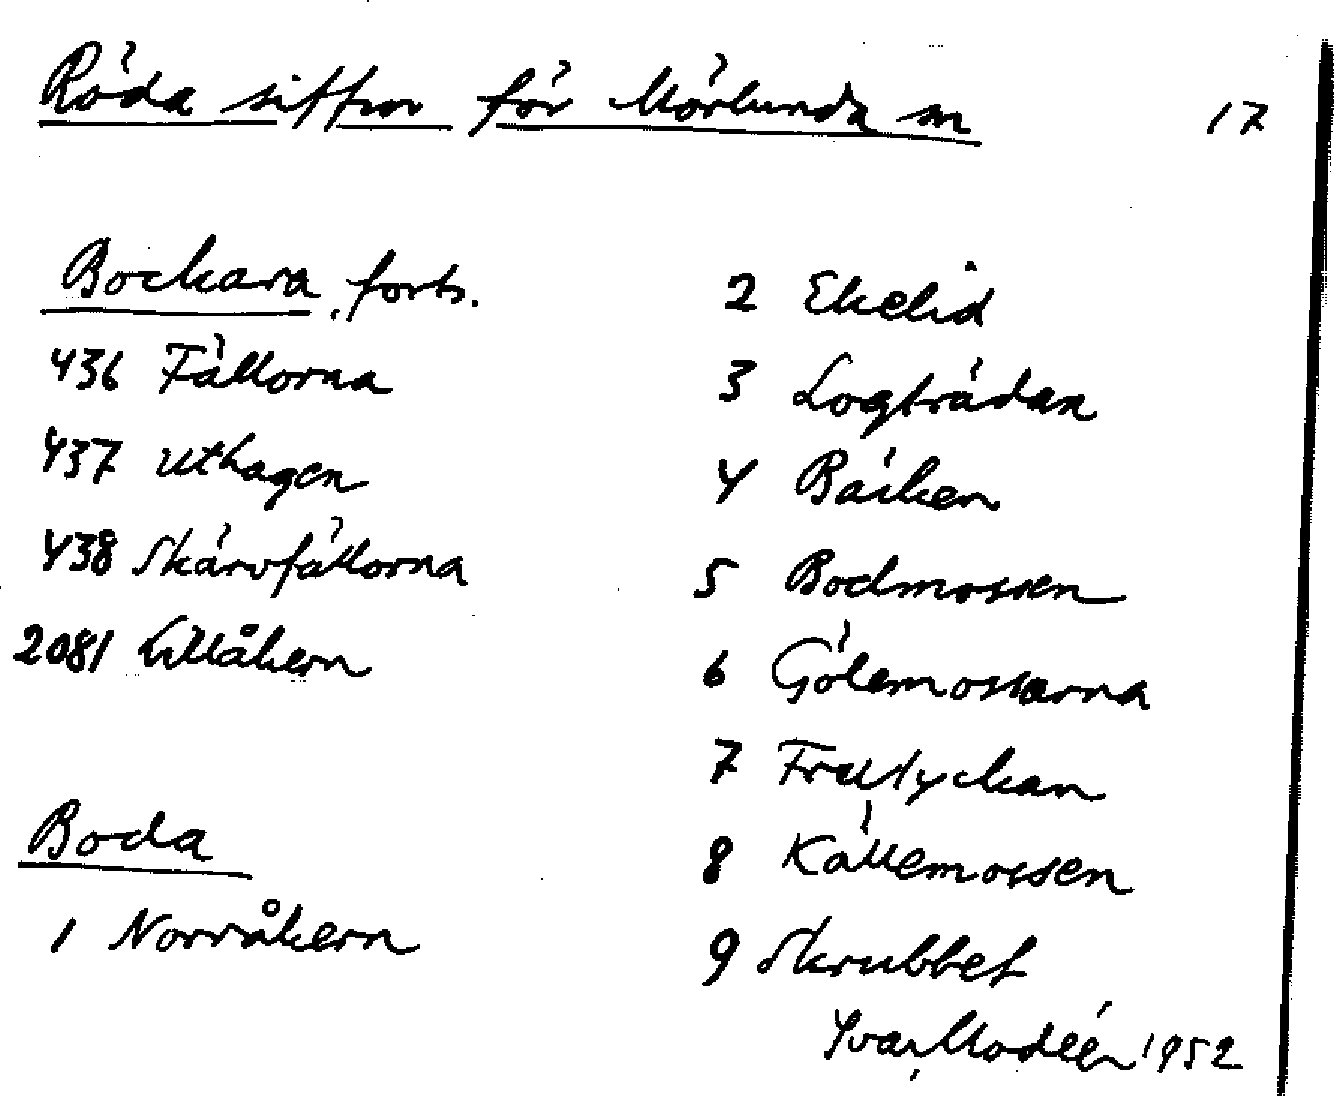 Röda siffror för Mörlunda sn 17
Bockara, forts.
436 Fällorna
437 Uthagen
438 Skärvfällorna
2081 Lillåkern
Boda
1 Norråkern
2 Ekelid
3 Logträdan
4 Bäcken
5 Bodmossen
6 Gölemossarna
7 Frulyckan
8 Källemossen
9 Skrubbet
Yvar Modéer 1952